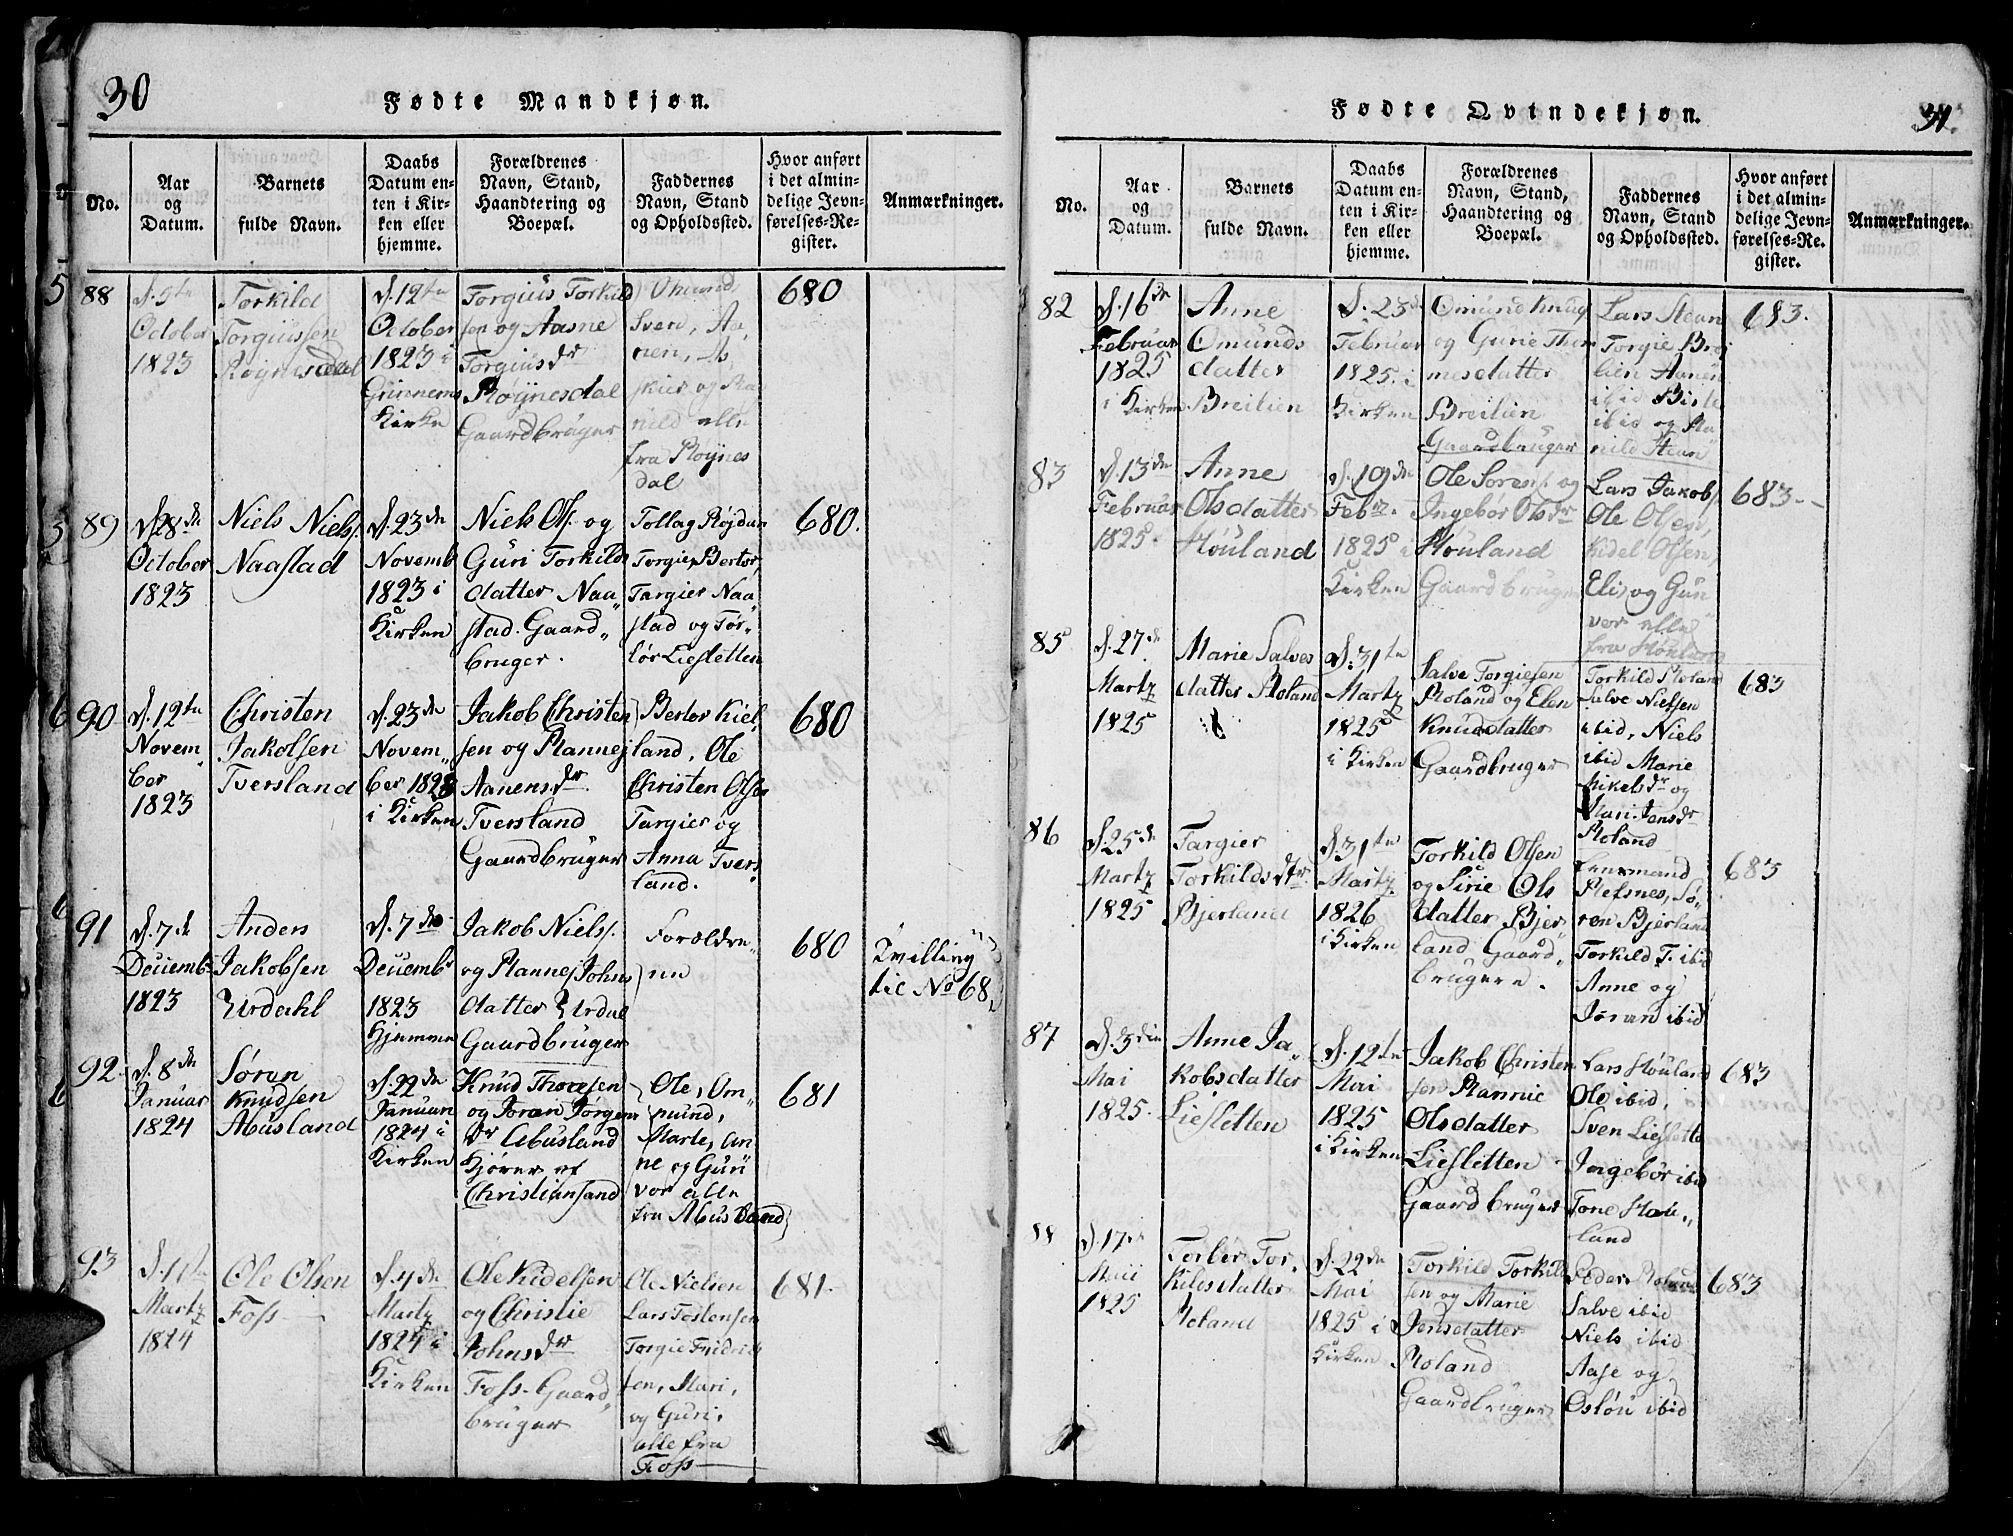 30
Fødte Mandkjøn.
No.
Aar
og
Datum.
Barnets
fulde Navn.
Daabs
Datum en-
ten i Kir-
ken eller
hjemme.
Forældrenes
Navn, Stand,
Haandtering og
Boepæl.
Faddernes
Navn, Stand
og Opholdssted.
Hvor anført
i det almin-
delige Jevn-
førelses-Re-
gister.
Anmærkninger.
88
October
1823
Torkild
Torgiussen
Røynesdal
d. 12te
October
1823 i
Grinnems
Kirken
Torgius Torkild
sen og Aasne
Torgiusdr
Røynesdal
Gaardbruger
Omund
Sven, Aa
nen, As
nild alle
fra Røynes
dal
680
89
d. 28de
October
1823
Niels Niels.
Naastad
d. 23de
Novemb
1823 i
Kirken
Niels Ols. og
Guri Torkilds
datter Naa„
stad. Gaard„
bruger.
Tollag Røjdan
Torgie, Bertor,
Targier Naa„
stad og Tor„
lør Liesletten
680.
90
d. 12te
Novem„
ber
1823
Christen
Jakobsen
Tversland
d. 23de
Novem„
ber 1823
i Kirken
Jakob Christen
sen og Rannej
Aanensdr
Tversland
Gaardbruger
Bertor Kiel
land, Ole
Christen Olsen
Targier og
Anna Tvers„
land.
680
91
d. 7de
Decemb
1823
Anders
Jakobsen
Urdahl
d. 7de
Decembr
1823
Hjemme
Jakob Niels.
og Rannej Johns
datter Urdal
Gaardbruger
Forældre„
ne
680
Tvilling
til No 68.
92
d. 8de
Januar
1824
Søren
Knudsen
Abusland
d. 22de
Januari
1824 i
Kirken
Knud Thoresen
og Joran Jørgens
dr Abusland
Hjører af
Christiansand
Ole, Om„
mund,
Marte, An
ne og Gun
vor alle
fra Abusland
681
93
Martz
1824
Ole Olsen
Foss
d. 4de
Martz
1824 i
Kirken
Ole Kidelsen
og Christie
Johnsdr
Foss. Gaard„
bruger
Ole Nielsen
Lars Tostensen
Torgie Fridrich
sen, Mari,
og Guri,
alle fra
Foss
681.
31.
Fødte Qvindekjøn.
No.
Aar
og
Datum.
Barnets
fulde Navn.
Daabs
Datum en-
ten i Kir-
ken eller
hjemme.
Forældrenes
Navn, Stand,
Haandtering og
Boepæl.
Faddernes
Navn, Stand
og Opholdssted.
Hvor anført
i det almin-
delige Jevn-
førelses-Re-
gister.
Anmærkninger.
82
d. 16de
Februar
1825
i Kirken
Anne
Omunds
datter
Breilien
d. 23de
Februar
1825. i
Kirken
Omund Knud
og Gurie Thom
mesdatter
Breilien
Gaardbruger
Lars Stean
Torgie Brei
lien Aanen
ibid
ibid og Ra
nild Stean
683.
83
d. 13de
Februar
1825.
Anne
Olsdatter
Høuland
d. 19de
Febr.
1825 i
Kirken
Ole Sørens. og
Ingebør Olsdr
Høuland
Gaardbruger
Lars Jakobs.
Ole Olsen,
Kidel Olsen,
Eli, og Gun
vor alle
fra Høuland
683.
85
d. 27de
Martz
1825
Marie Salves
datter Roland
d. 31te
Martz
1825
i Kirken
Salve Torgiesen
Roland og Elen
Knudsdatter
Gaardbruger
Torkild Roland
Salve Nielsen
ibid, Niels
ibid Marie
Mikelsdr og
Mari Jensdr
Roland
683
86
d. 25de
Martz
1825
Targier
Torkildsdtr
Bjerland
d. 31te
Martz
1826
i Kirken
Torkild Olsen
og Sirie Ols
datter Bjer„
land Gaard„
brugere.
Lensmand
Refsnes, Sø„
ren Bjerland
Torkild T. ibid
Anne og
Joran ibid
683
87
d. 3die
Mai
1825.
Anne Ja„
kobsdatter
Liesletten
d. 12te
Mai
1825
i Kirken
Jakob Christen
sen Rannie
Olsdatter
Liesletten
Gaardbruger
Lars Høuland
Ole ibid,
Sven Lieslette
Ingebør ibid
Tone Høu„
land
683
88
d. 17de
Maii
1825
Torber Tor„
kildsdatter
Roland
d. 22de
Mai
1825 i
Kirken
Torkild Torkild
sen og Marie
Jensdatter
Roland
Gaardbruger
Peder Roland
Salve ibid
Niels ibid
Aase og
Osløu ibid
683